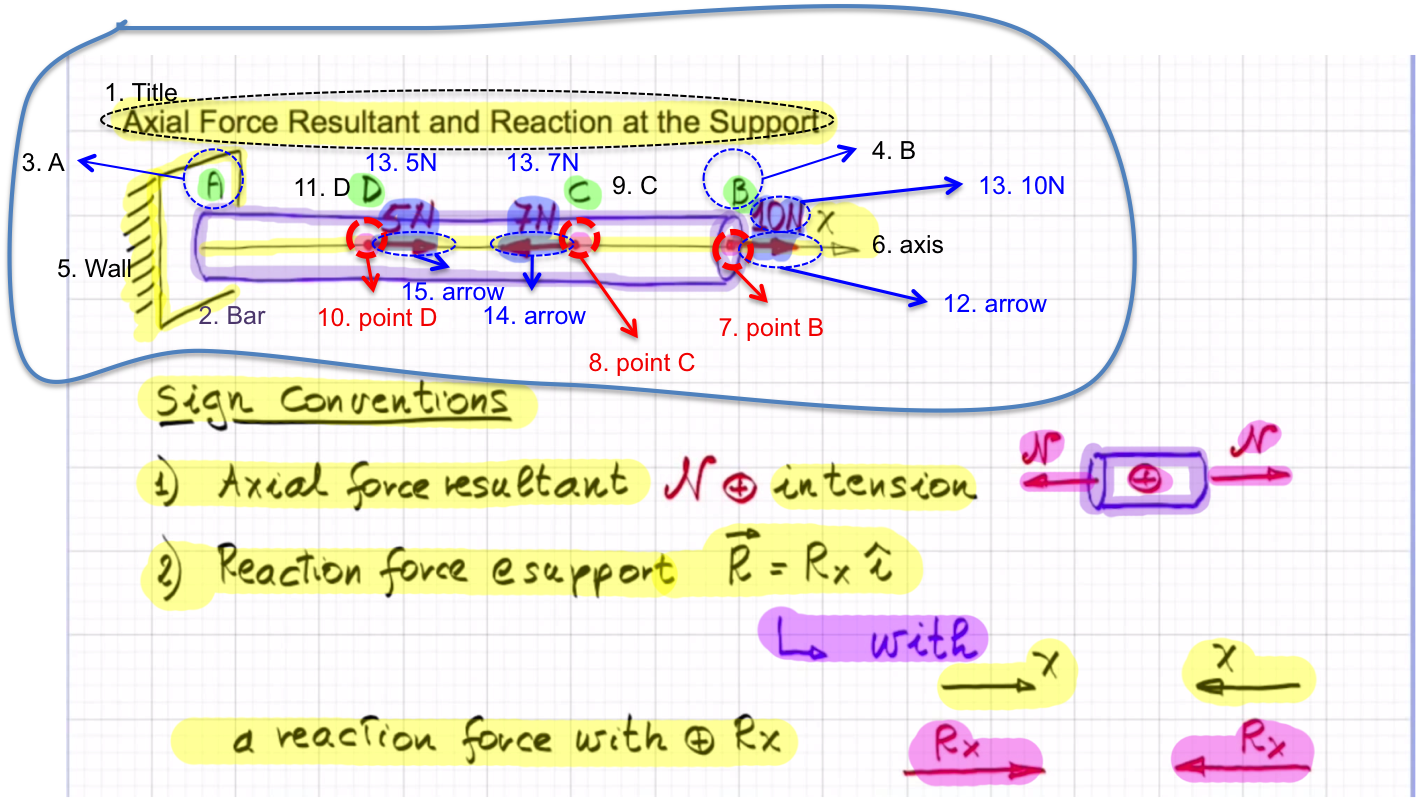 1. Title
Axial Force Resultant and Reaction at the Support
3. A
A
13. 5N
13. 7N
4. B
11. D
D
C
9. C
B
13. 10N
5N
7N
10N
x
6. axis
5. Wall
15. arrow
12. arrow
2. Bar
10. point D
14. arrow
7. point B
8. point C
Sign Conventions
1) Axial force resultant N ⊕ in tension
N
⊕
N
2) Reaction force @ support R⃗ = Rx î
↳ with
x
x
a reaction force with ⊕ Rx
Rx
Rx